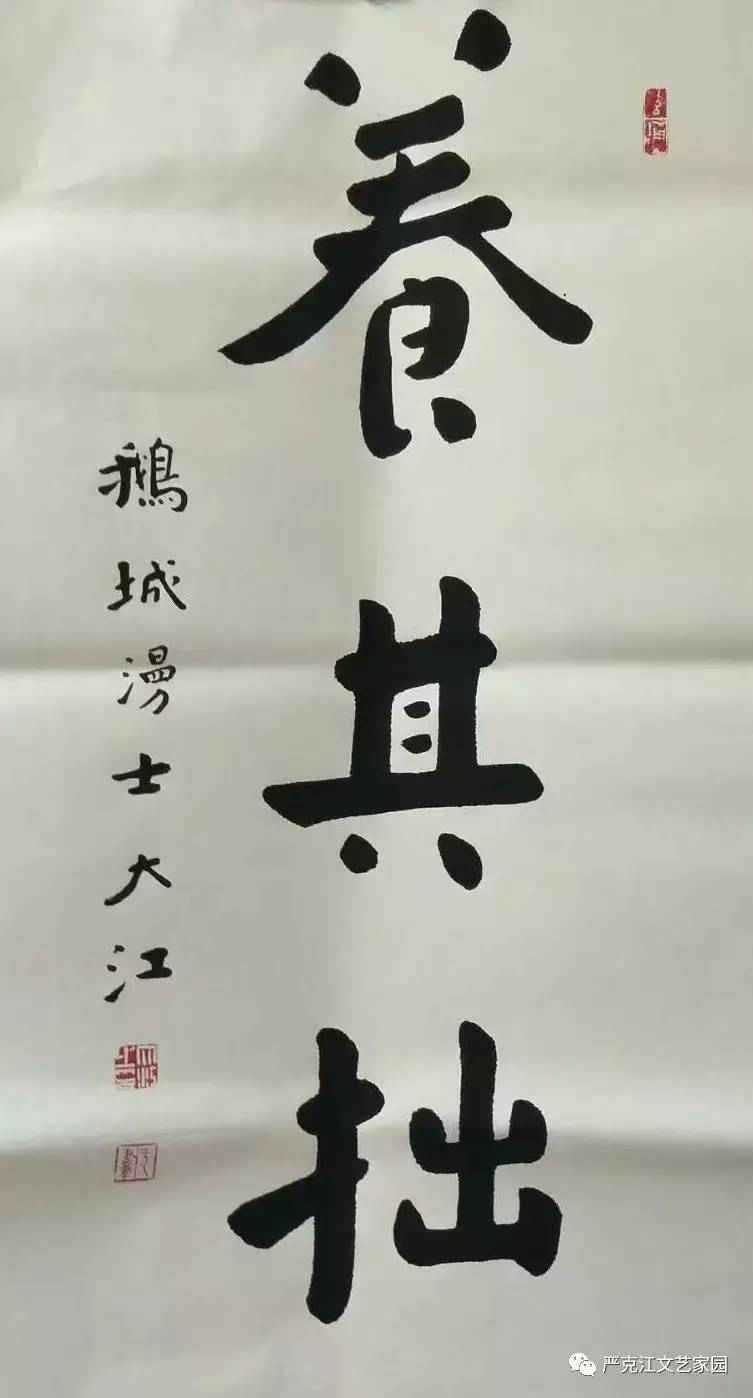 養其拙
鵝城漫士大江
严克江文艺家园